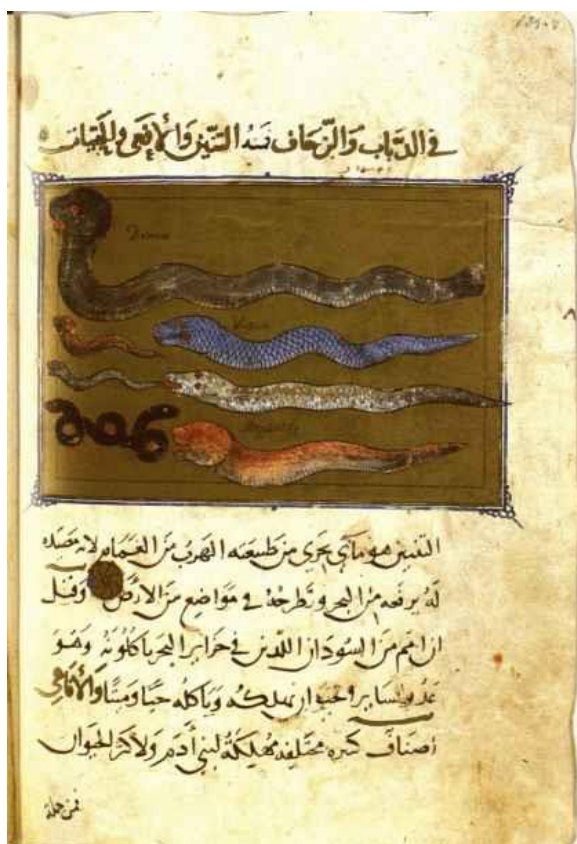 في الدباب والزحاف نسه التنين والأفعى والحيات
التنين هو مائي بحري من طبيعته الهرب من الغمام لانه مصيده
له يرفعه من البحر وتطرحه في مواضع من الارض وقل
ان امم من السودان اللدين في جزاير البحر ياكلونه وهو
عدو لساير ان يهلكه وياكله حيا وميتا والأفاعي
أصناف كثيره مختلفه مهلكة لبني أدم ولأكثر الحيوان
فمن جملة